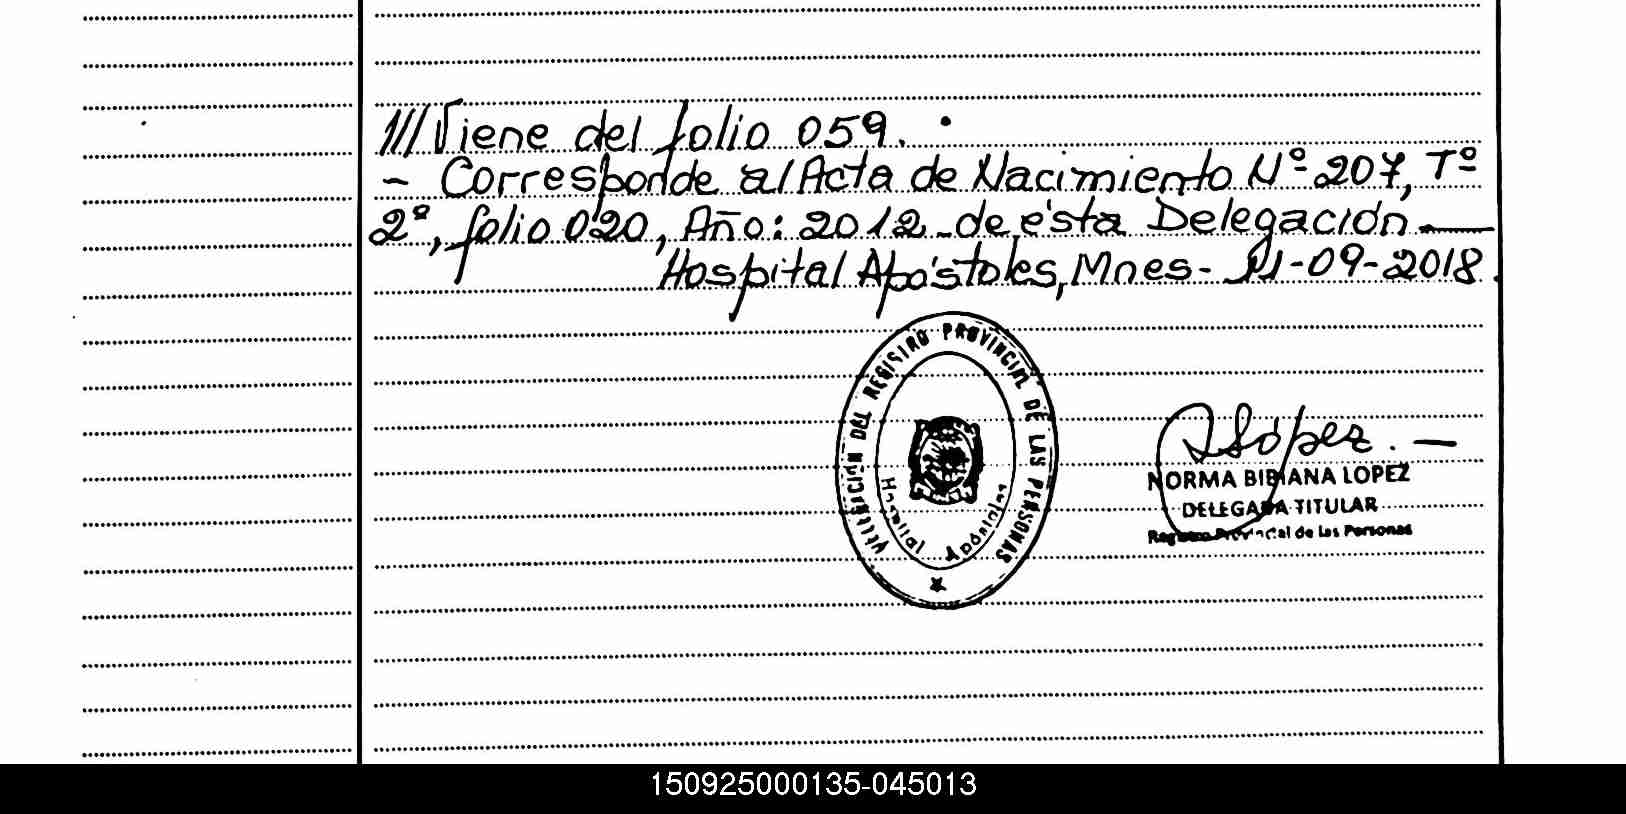 /// Viene del folio 059.
- Corresponde al Acta de Nacimiento Nº 207, Tº
2º, folio 020, Año: 2012 - de ésta Delegación. —
Hospital Apóstoles, Mnes - 11-09-2018.
DELEGACIÓN DEL REGISTRO PROVINCIAL DE LAS PERSONAS
Hospital Apóstoles
López. —
NORMA BIBIANA LOPEZ
DELEGADA TITULAR
Registro Provincial de las Personas
150925000135-045013